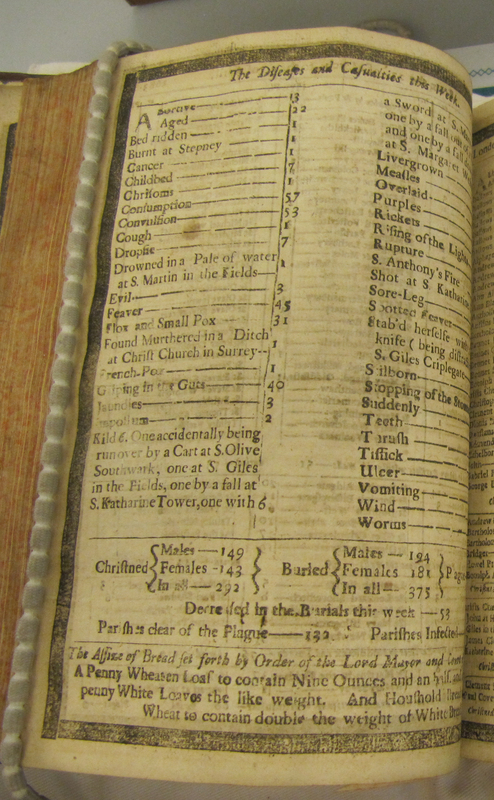 The Diseases and Casualties this Week.
Abortive 3
Aged 22
Bed ridden 1
Burnt at Stepney 1
Cancer 1
Childbed 7
Chrisoms 1
Consumption 57
Convulsion 53
Cough 1
Dropsie 7
Drowned in a Pale of water
at S. Martin in the Fields 1
Evil 3
Feaver 45
Flox and Small Pox 31
Found Murthered in a Ditch
at Christ Church in Surrey 1
French-Pox 1
Griping in the Guts 40
Jaundies 3
Impostume 2
Kild 6. One accidentally being
run over by a Cart at S. Olive
Southwark, one at S. Giles
in the Fields, one by a fall at
S. Katharine Tower, one with 6
a Sword at S.
one by a fall
and one by a fall
at S. Margaret
Livergrown
Measles
Overlaid
Purples
Rickets
Rising of the Lights
Rupture
S. Anthony's Fire
Shot at S. Katharine
Sore-Leg
Spotted Feaver
Stab'd herselfe with
knife (being
S. Giles Criplegate
Stilborn
Stopping of the
Suddenly
Teeth
Thrush
Tissick
Ulcer
Vomiting
Wind
Worms
Christned { Males — 149 Females — 143 In all — 292 }
Buried { Males — 194 Females 181 In all — 375 }
Decreased in the Burials this week — 53
Parishes clear of the Plague — 132 Parishes Infected
The Assize of Bread set forth by Order of the Lord Mayor and
A Penny Wheaten Loaf to contain Nine Ounces and an half,
penny White Loaves the like weight. And Houshold
Wheat to contain double the weight of White